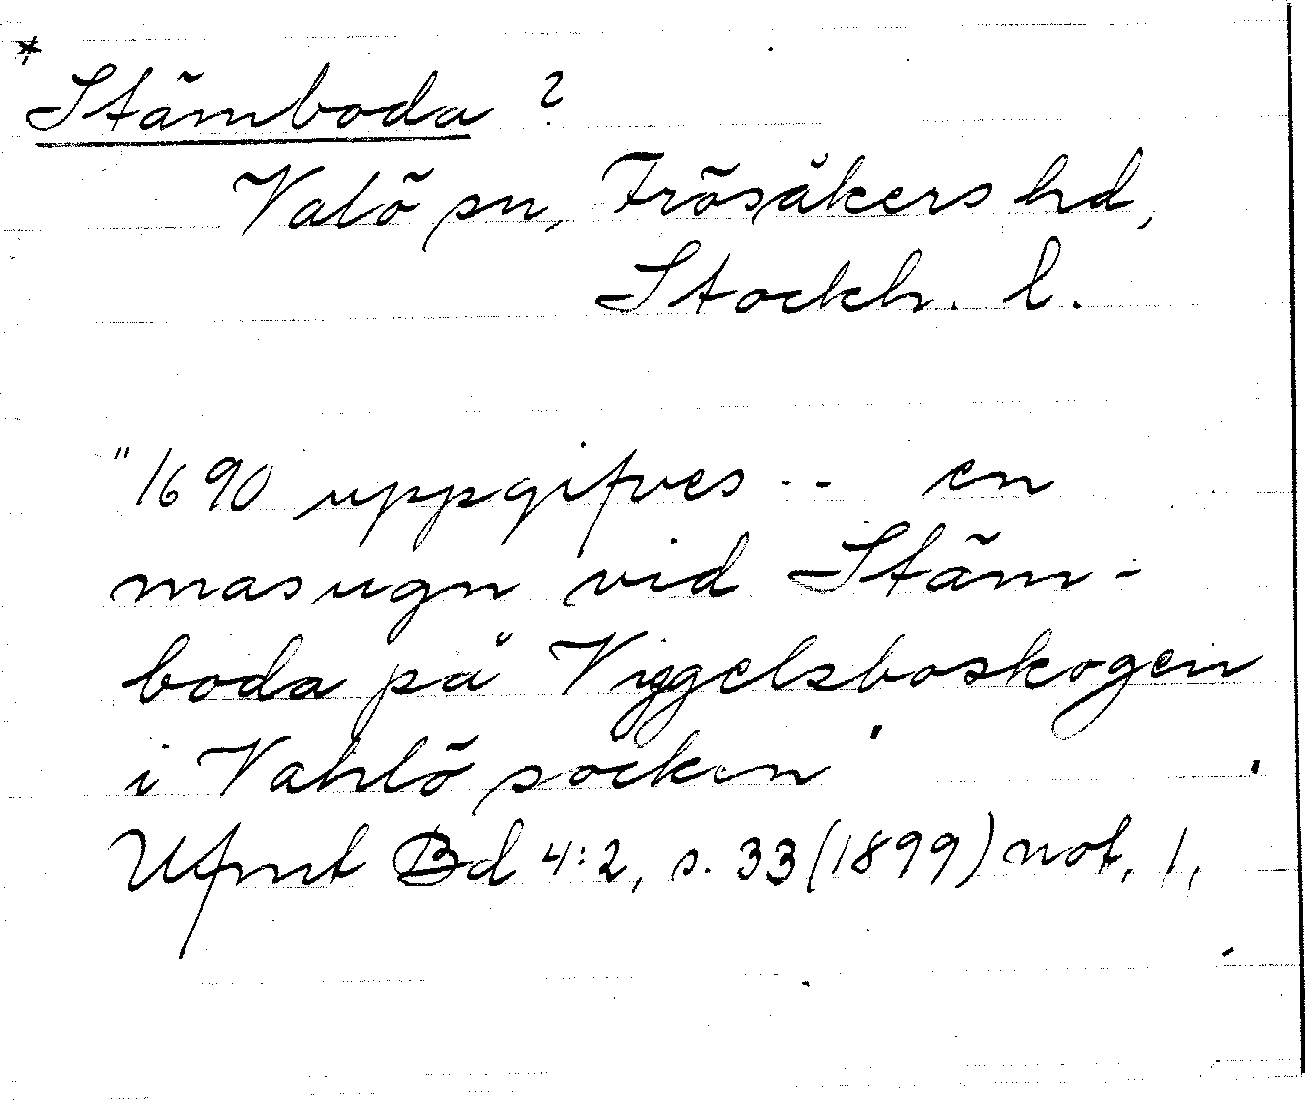 *
Stämboda ?
Valö sn, Frösåkers hd,
Stockh. l.
"1690 uppgifves -- en
masugn vid Stäm-
boda på Viggelsboskogen
i Vahlö socken"
Ufmt Bd 4:2, s. 33 (1899) not. 1.